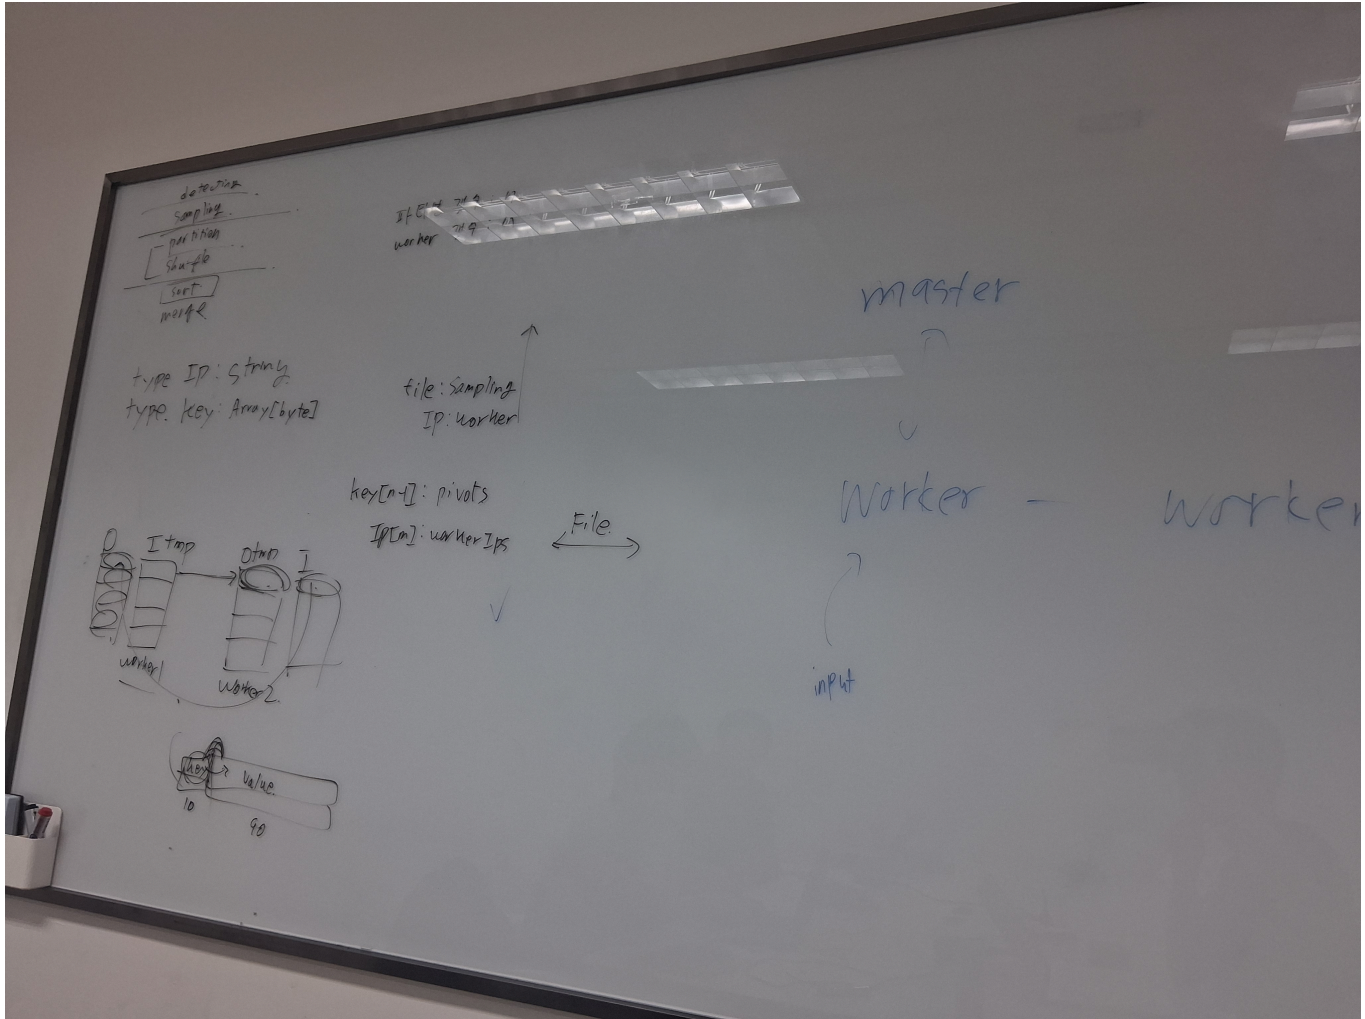 detecting
sampling
partition
shuffle
sort
merge
worker
type IP: String
type key: Array[byte]
file: Sampling
IP: worker
key[n-1]: pivots
Ip[m]: workerIps
File
O
I tmp
I
worker1
worker2
key
value
10
90
master
worker - worker
input